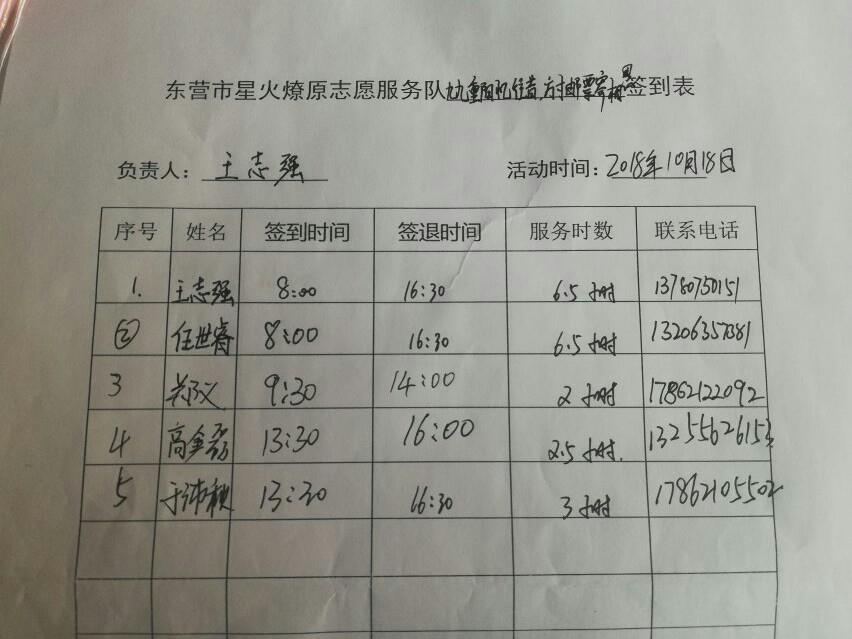 东营市星火燎原志愿服务队 签到表
负责人：王志强 活动时间：2018年10月18日
序号 姓名 签到时间 签退时间 服务时数 联系电话
1. 王志强 8:00 16:30 6.5小时 13780750151
② 任世睿 8:00 16:30 6.5小时 13206357381
3 9:30 14:00 2小时 17862122092
4 高金磊 13:30 16:00 2.5小时. 13255626153
5 13:30 16:30 3小时 17862105502